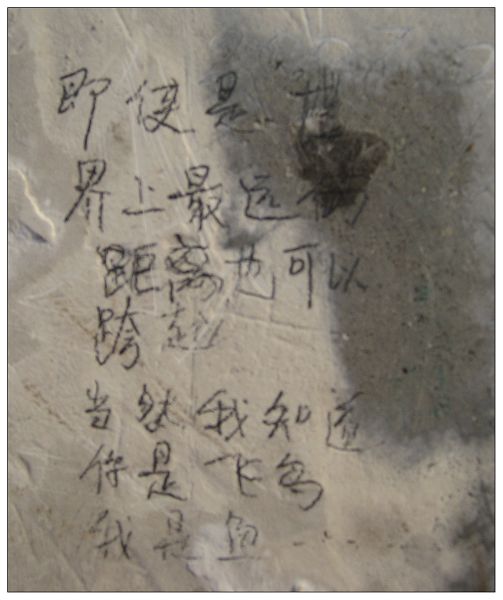 即使是世
界上最远的
距离也可以
跨越
当然我知道
你是飞鸟
我是鱼...